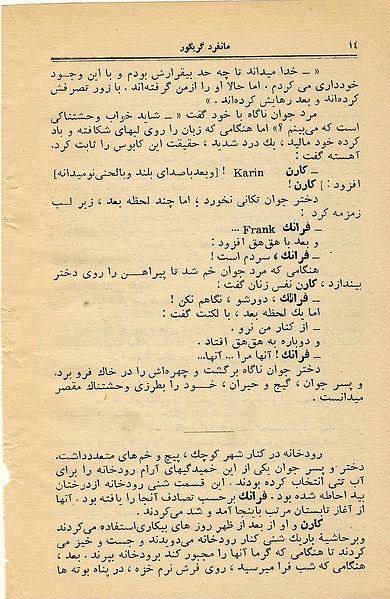 ۱۴
مانفرد گریگور
« ــ خدا میداند تا چه حد بیقرارش بودم و با این وجود
خودداری می کردم . اما حالا او را ازمن گرفته‌اند . با زور تصرفش
کرده‌اند و بعد رهایش کرده‌اند . »
مرد جوان ناگاه با خود گفت « ــ شاید خواب وحشتناکی
است که می‌بینم ؟» اما هنگامی که زبان را روی لبهای شکافته و باد
کرده خود مالید ، یک درد شدید ، حقیقت این کابوس را ثابت کرد.
آهسته گفت :
ــ کارن Karin ! [وبعدباصدای بلند وبالحنی‌نومیدانه]
افزود : ] کارن !
دختر جوان تکانی نخورد ؛ اما چند لحظه بعد ، زیر لب
زمزمه کرد :
ــ فرانک Frank ...
و بعد با هق‌هق افزود :
ــ فرانک ، سردم است !
هنگامی که مرد جوان خم شد تا پیراهن را روی دختر
بیندازد ، کارن نفس زنان گفت :
ــ فرانک ، دورشو ، نگاهم نکن !
اما یک لحظه بعد ، با لکنت گفت :
ــ از کنار من نرو .
و دوباره به هق‌هق افتاد .
ــ فرانک ! آنها مرا ... آنها...
دختر جوان ناگاه برگشت و چهره‌اش را در خاک فرو برد.
و پسر جوان ، گیج و حیران ، خود را بطرزی وحشتناک مقصر
میدانست .
رودخانه در کنار شهر کوچک ، پیچ و خم‌های متعددداشت.
دختر و پسر جوان یکی از این خمیدگیهای آرام رودخانه را برای
آب تنی انتخاب کرده بودند . این قسمت شنی رودخانه ازدرختان
بید احاطه شده بود . فرانک برحسب تصادف آنجا را یافته بود . آنها
از آغاز تابستان مرتب باینجا آمد و شد می‌کردند .
کارن و او از بعد از ظهر روز های بیکاری‌استفاده می‌کردند
وبرحاشیهٔ باریک شنی کنار رودخانه می‌دویدند و جست و خیز می
کردند تا هنگامی که گرما آنها را مجبور کند برودخانه بپرند . بعد ،
هنگامی که شب فرا میرسید ، روی فرش نرم خزه ، در پناه بوته ها